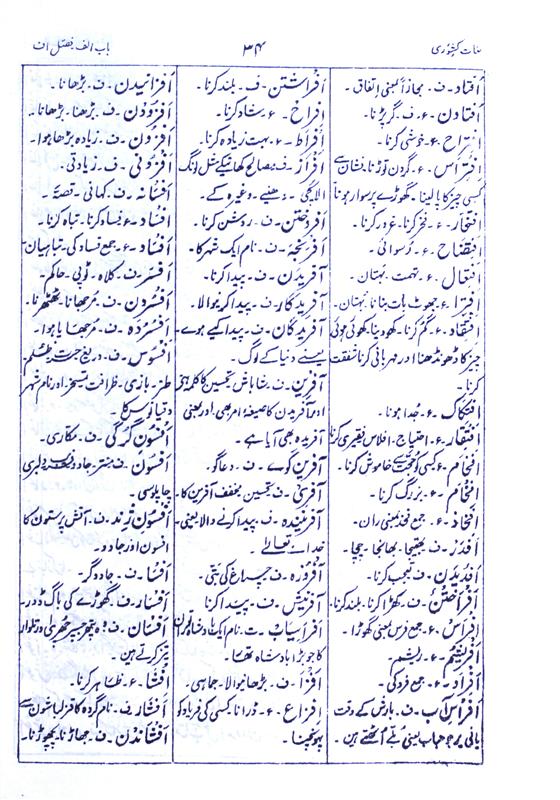 لغات کشوری
۳۴
باب الف فصل ا ف
اُفتاد۔ ف۔ مجازاً بمعنی اتفاق۔
اُفتادن۔ ف۔ گر پڑنا۔
اِفتراح۔ ع۔ خوشی کرنا۔
اِفتراس۔ ع۔ گردن توڑنا۔ نشان سے
کسی چیز کا پالینا۔ گھوڑے پر سوار ہونا
اِفتخار۔ ع۔ فخر کرنا۔ غرور کرنا۔
اِفتضاح۔ ع۔ رسوائی۔
اِفتعال۔ ع۔ تہمت۔ بہتان۔
اِفترا۔ ع۔ جھوٹ بات بنانا۔ بہتان۔
اِفتقاد۔ ع۔ گم کرنا۔ کھو دینا۔ کھوئی ہوئی
چیز کا ڈھونڈھنا اور مہربانی کرنا شفقت
کرنا۔
اِفتکاک۔ ع۔ جدا ہونا۔
اِفتقار۔ ع۔ احتیاج۔ افلاس فقیری کرنا
اِفحام۔ ع۔ کسی کو حجت سے خاموش کرنا۔
اِفخام۔ ع۔ بزرگ کرنا۔
افخاذ۔ ع۔ جمع فخذ بمعنی ران۔
اَفدر۔ ف۔ بھتیجا۔ بھانجا۔ چچا۔
اَفدیدن۔ ف۔ تعجب کرنا۔
اَفراختن۔ ف۔ کھڑا کرنا۔ بلند کرنا۔
اَفراس۔ ع۔ جمع فرس بمعنی گھوڑا۔
اَفریشم۔ ع۔ ریشم۔
اَفراد۔ ع۔ جمع فرد کی۔
اَفراس آب۔ ف۔ بارش کے وقت
پانی پر جو حباب یعنی بلبلے اٹھتے ہیں۔
اَفراشتن۔ ف۔ بلند کرنا۔
اِفراح۔ ع۔ شاد کرنا۔
اِفراط۔ ع۔ بہت زیادہ کرنا۔
اَفراز۔ ف۔ مصالح کھانیکے مثل لونگ
الائچی۔ دھنیے۔ وغیرہ کے۔
اَفروختن۔ ف۔ روشن کرنا۔
اَفرنجہ۔ ف۔ نام ایک شہر کا۔
آفریدن۔ ف۔ پیدا کرنا۔
آفریدگار۔ ف۔ پیدا کرنیوالا۔
آفریدگان۔ ف۔ پیدا کیے ہوے۔
یعنے دنیا کے لوگ۔
آفرین۔ ف۔ شاباش تحسین کا کلمہ ہے
اور آفریدن کا صیغہ امر بھی۔ اور بمعنی
آفریدہ بھی آیا ہے۔
آفرین گوے۔ ف۔ دعاگو۔
آفری۔ ف۔ تحسین مخفف آفرین کا۔
آفرینندہ۔ ف۔ پیدا کرنے والا یعنی
خداے تعالے۔
اَفروزہ۔ ف۔ چراغ کی بتی۔
آفرینش۔ ف۔ پیدا کرنا
افراسیاب۔ ت۔ نام ایک بادشاہ توران
کا جو بڑا بادشاہ تھا۔
اَفزا۔ ف۔ بڑھانیوالا۔ جماہی۔
اِفزاع۔ ع۔ ڈرانا۔ کسی کی فریاد کو
پہونچنا۔
اَفزانیدن۔ ف۔ بڑھانا۔
اَفزودن۔ ف۔ بڑھنا۔ بڑھانا۔
اَفزون۔ ف۔ زیادہ بڑھا ہوا۔
اَفزونی۔ ف۔ زیادتی۔
اَفسانہ۔ ف۔ کہانی۔ قصہ۔
اِفساد۔ ع۔ فساد کرنا۔ تباہ کرنا۔
اَفساد۔ ع۔ جمع فساد کی۔ تباہیان۔
اَفسر۔ ف۔ کلاہ۔ ٹوپی۔ حاکم۔
اَفسردن۔ ف۔ مرجھانا۔ ٹھٹھرنا۔
اَفسردہ۔ ف۔ مرجھایا ہوا۔
اَفسوس۔ ف۔ دریغ حسرت۔ ظلم۔
طنز۔ بازی۔ ظرافت تمسخر۔ اور نام شہر
دقیانوس کا۔
اَفسون گرگی۔ ف۔ مکاری۔
اَفسون۔ ف۔ منتر۔ جادو دلبری
چاپلوسی۔
اَفسون ترند۔ ف۔ آتش پرستون کا
افسون اور جادو۔
اَفسا۔ ف۔ جادوگر۔
اَفسار۔ ف۔ گھوڑے کی باگ ڈور۔
اَفسان۔ ف۔ وہ پتھر جسپر چھری اور تلوار
تیز کرتے ہیں۔
اِفشا۔ ع۔ ظاہر کرنا۔
اَفشار۔ ف۔ نام گروہ کا قزلباشون سے
اَفشاندن۔ ف۔ جھاڑنا۔ پچھوڑنا۔